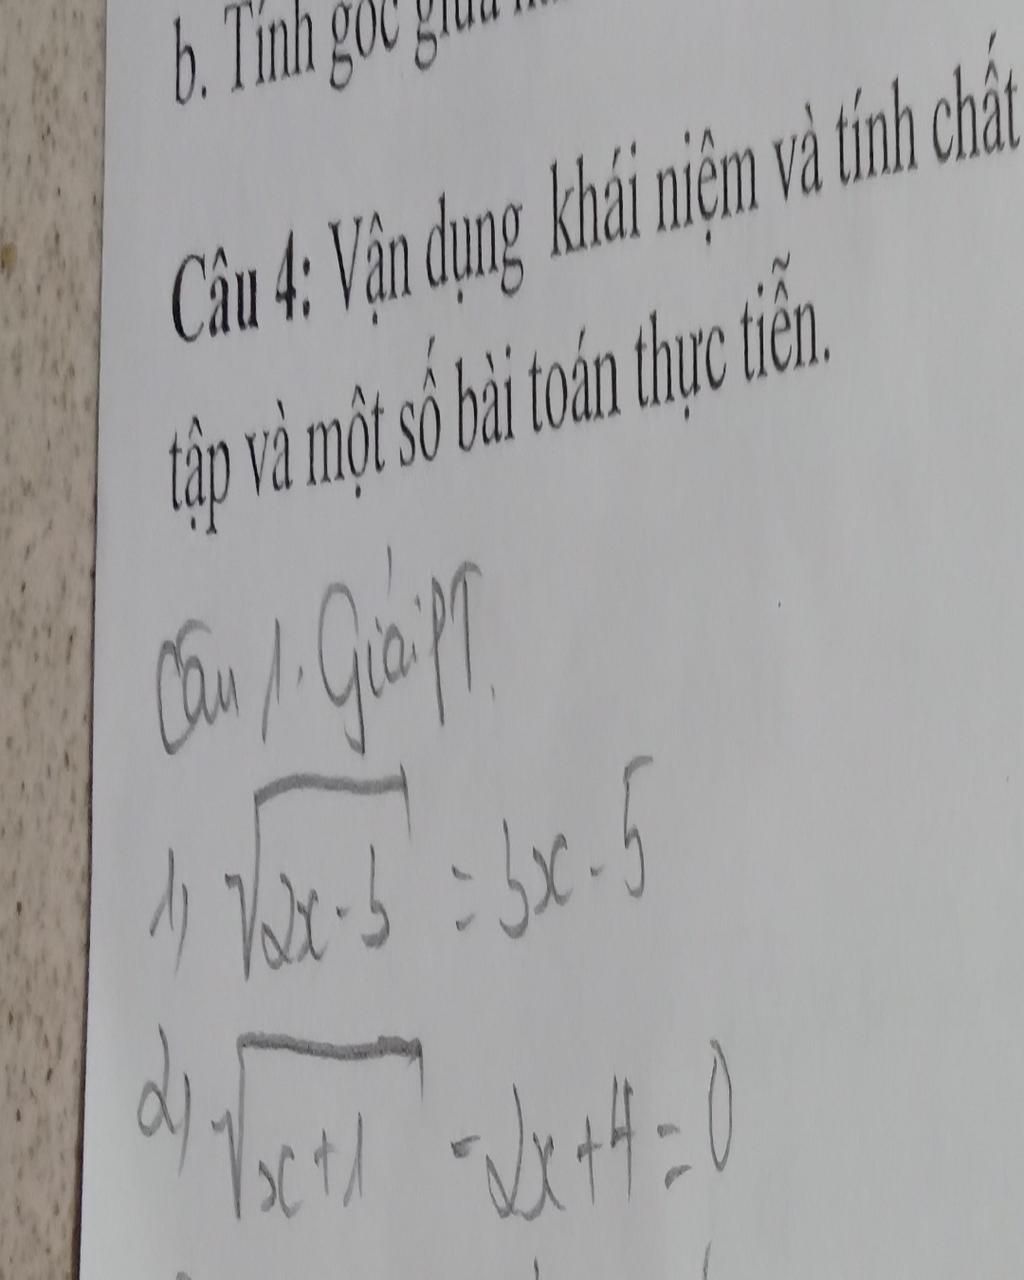 b. Tính góc giữa
Câu 4: Vận dụng khái niệm và tính chất
tập và một số bài toán thực tiễn.
Câu 1. Giải PT.
1) √(2x - 3) = 3x - 5
2) √(x + 1) - 2x + 4 = 0